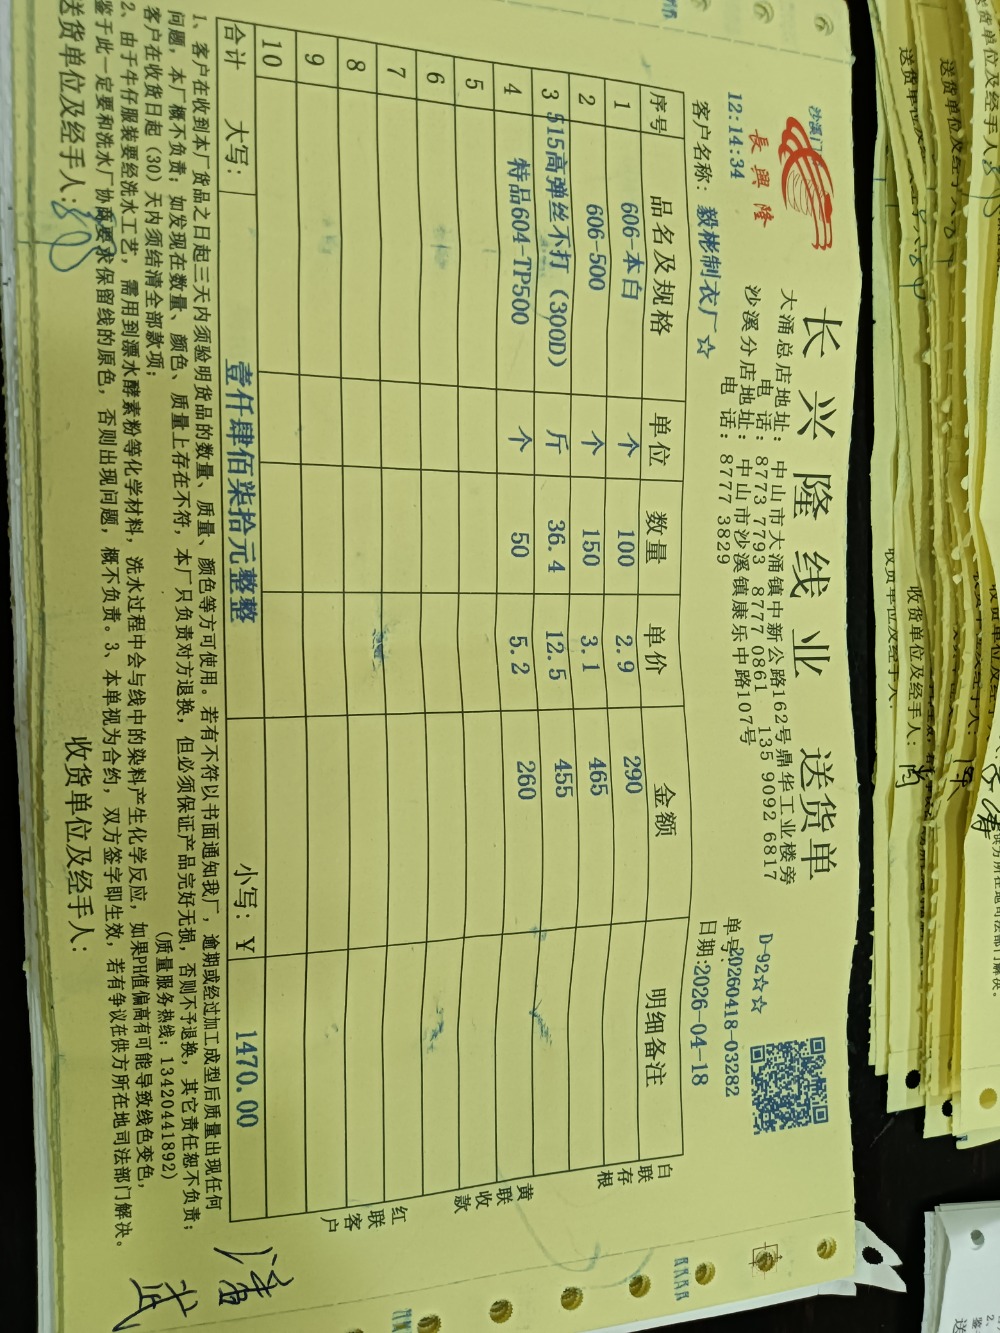 长兴隆线业 送货单
沙溪门
長興隆
大涌总店地址: 中山市大涌镇中新公路162号鼎华工业楼旁
电 话: 8773 7793 8777 0861 135 9092 6817
沙溪分店地址: 中山市沙溪镇康乐中路107号
电 话: 8777 3829
D-92☆☆
12:14:34
单号:20260418-03282
客户名称: 毅彬制衣厂☆
日期:2026-04-18
序号 品名及规格 单位 数量 单价 金额 明细备注
1 606-本白 个 100 2.9 290
2 606-500 个 150 3.1 465
3 515高弹丝不打(300D) 斤 36.4 12.5 455
4 特品604-TP500 个 50 5.2 260
5
6
7
8
9
10
合计 大写: 壹仟肆佰柒拾元整整 小写: ¥ 1470.00
白联存根
黄联收款
红联客户
1、客户在收到本厂货品之日起三天内须验明货品的数量、质量、颜色等方可使用。若有不符以书面通知我厂,逾期或经过加工成型后质量出现任何
问题,本厂概不负责;如发现在数量、颜色、质量上存在不符,本厂只负责对方退换,但必须保证产品完好无损,否则不予退换,其它责任恕不负责;
客户在收货日起(30)天内须结清全部款项;
(质量服务热线:13420441892)
2、由于牛仔服装要经洗水工艺,需用到漂水酵素粉等化学材料,洗水过程中会与线中的染料产生化学反应,如果PH值偏高有可能导致线色变色,
鉴于此一定要和洗水厂协商要求保留线的原色,否则出现问题,概不负责。3、本单视为合约,双方签字即生效,若有争议在供方所在地司法部门解决。
送货单位及经手人:
收货单位及经手人: